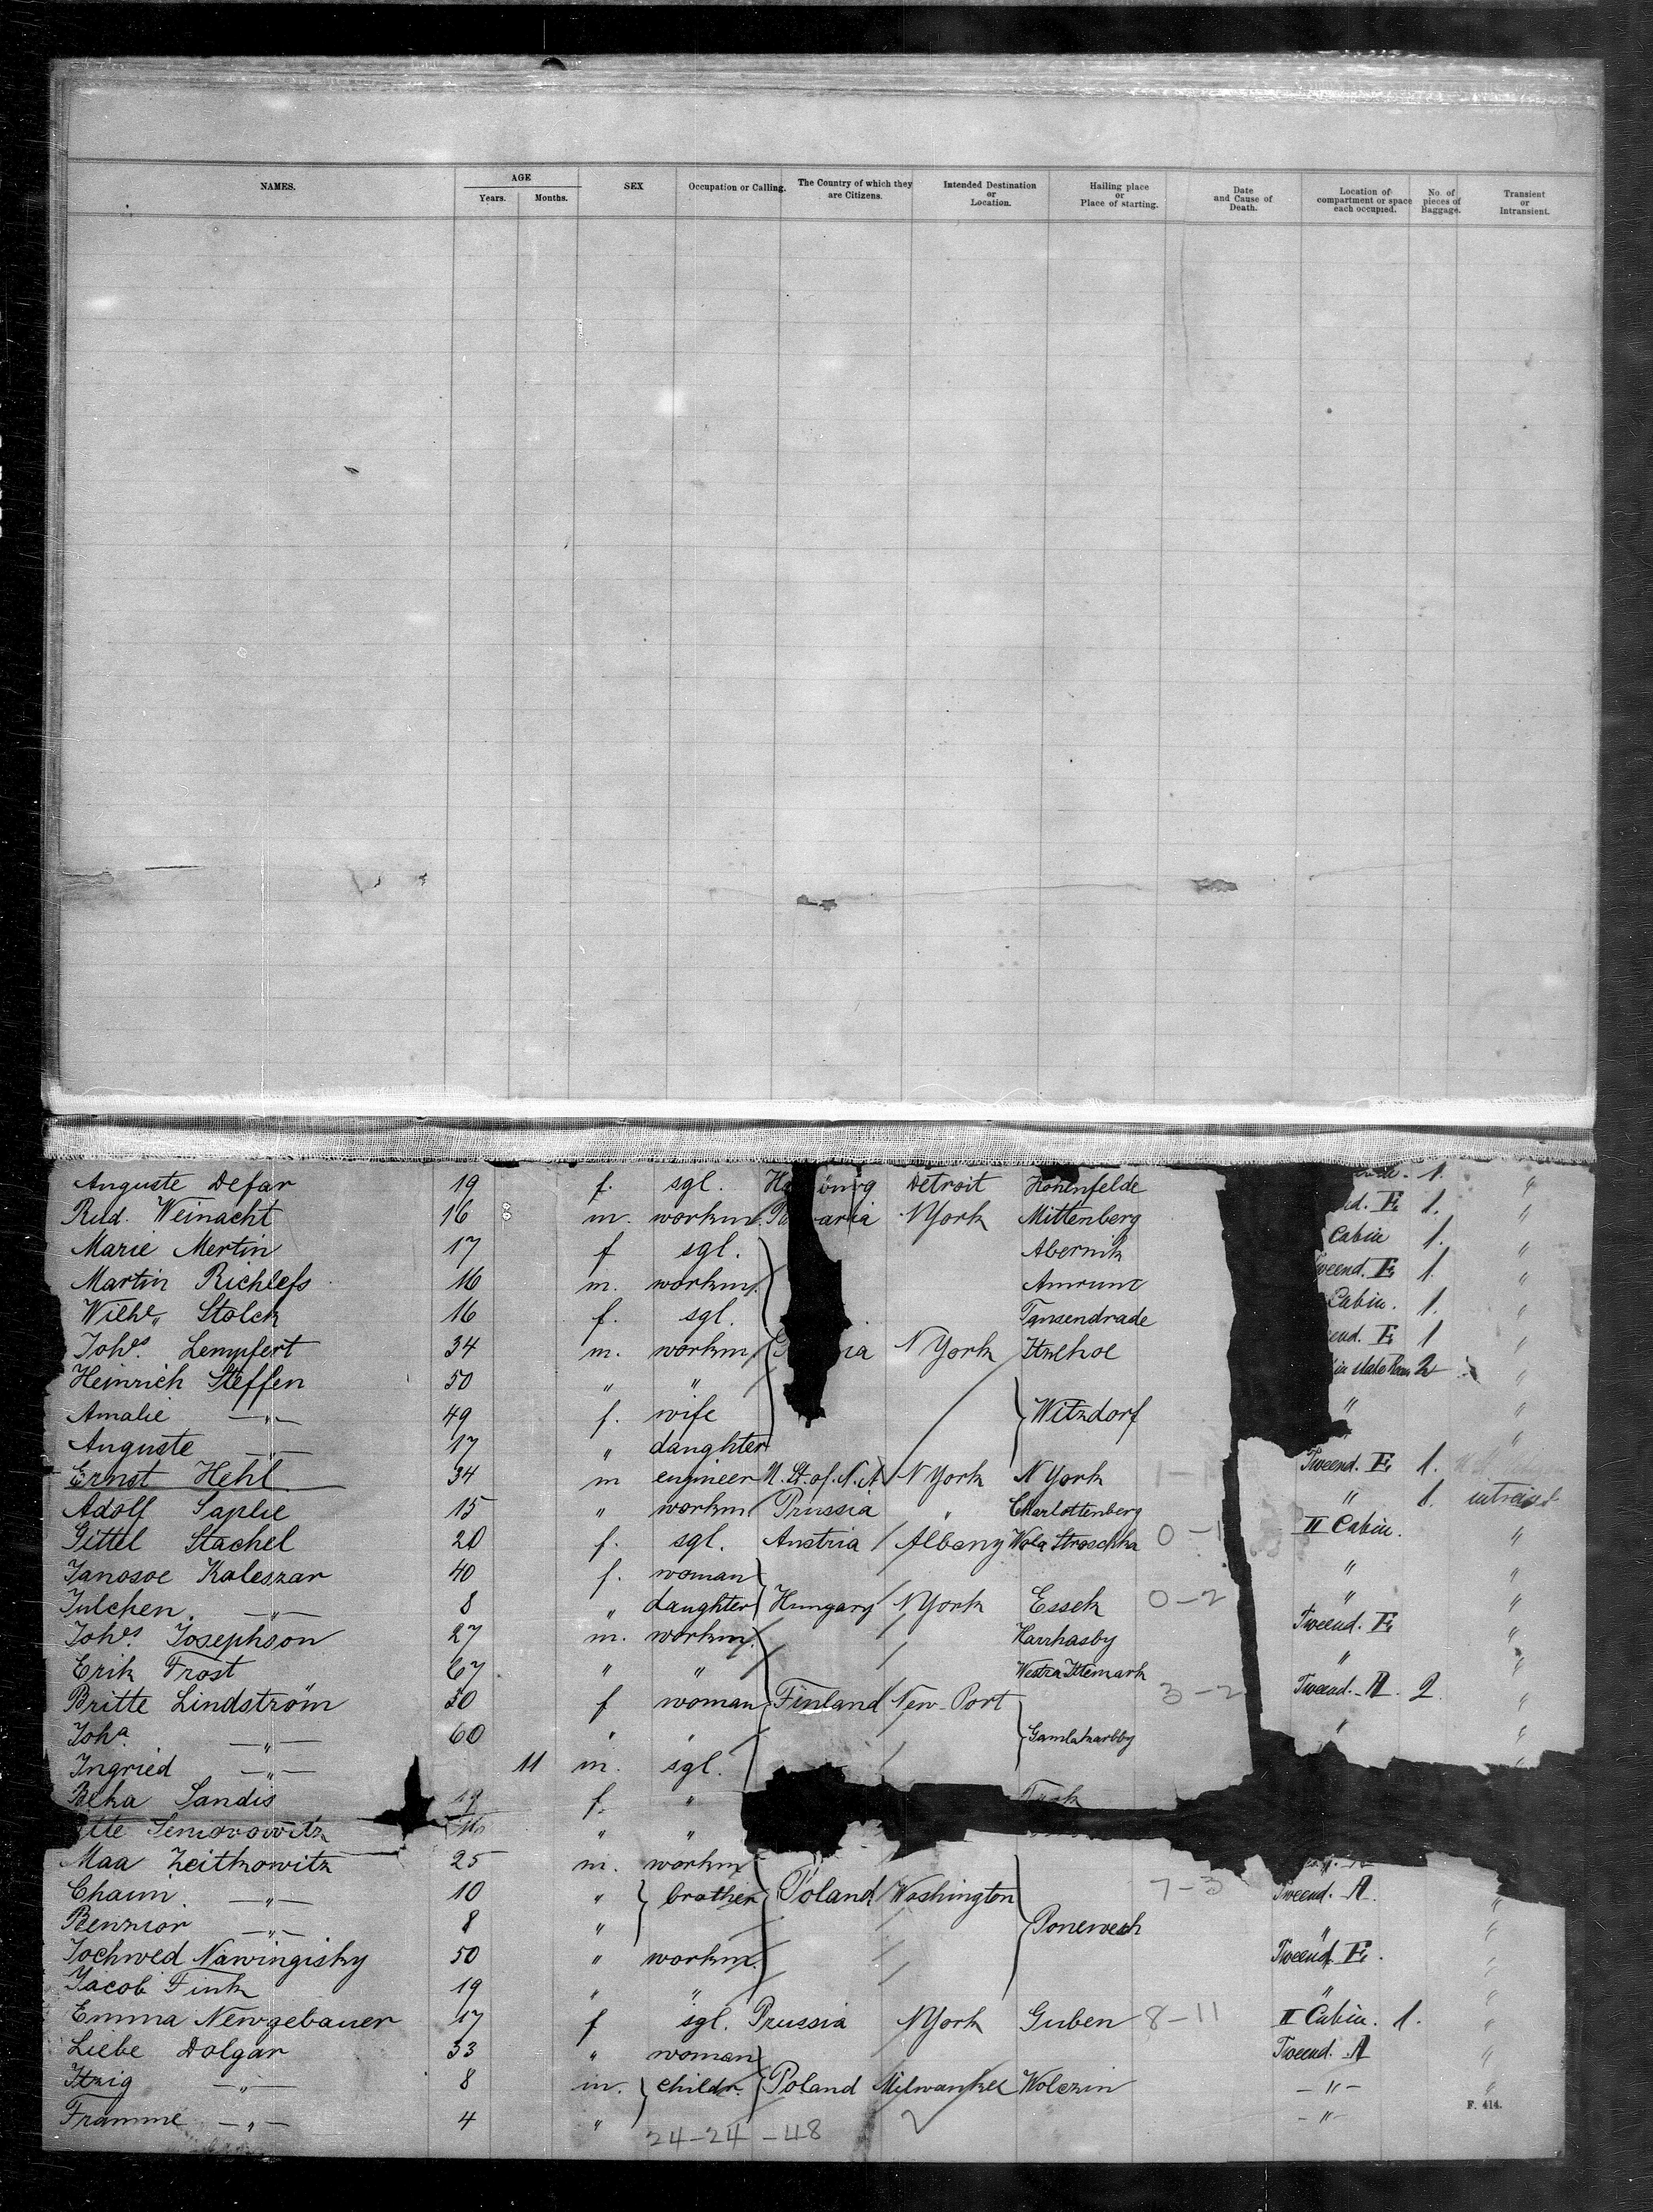 NAMES. AGE Years. Months. SEX Occupation or Calling. The Country of which they are Citizens. Intended Destination or Location. Hailing place or Place of starting. Date and Cause of Death. Location of compartment or space each occupied. No. of pieces of Baggage. Transient or Intransient.
Auguste Defar 19 f. sgl. Detroit Hohenfelde 1. "
Rud. Weinacht 16 m. workm. NYork Mittenberg E 1. "
Marie Mertin 17 f sgl. Abernik Cabin 1. "
Martin Richlefs 16 m. workm. Amrum Tweend. E 1. "
Wilhe. Stolck 16 f. sgl. Tansendrade Cabin. 1. "
Johes. Lempfert 34 m. workm. NYork Itzehoe E 1 "
Heinrich Steffen 50 " " 2 "
Amalie —"— 49 f. wife Witzdorf " "
Auguste —"— 17 " daughter "
Ernst Hehl 34 m engineer U. St. of. N. A NYork NYork 1- Tweend. E 1.
Adolf Saplie 15 " workm Prussia " Charlottenberg " 1.
Gittel Stachel 20 f. sgl. Austria Albany Wola Stroschka 0-1 II Cabin. "
Janosoe Kaleszar 40 f. woman " "
Julchen. —"— 8 " daughter Hungary NYork Essek 0-2 " "
Johes. Josephson 27 m. workm. Harrhasby Tweend. E "
Erik Frost 67 " " Westra " "
Britte Lindström 30 f woman Finland New-Port 3-2 Tweend. A. 2 "
Joha —"— 60 " " Gamlakarbby " "
Ingried —"— 11 m. sgl.
Beka Sandis 19 f. "
" "
Maa Zeitkowitz 25 m. workm
Chaim —"— 10 " brother Poland Washington 7-3 Tweend. A. "
Benzior —"— 8 " Ponewesh " "
Jochwed Nawingisky 50 " workm. Tweend. E. "
Jacob Fink 19 " " " "
Emma Newgebauer 17 f sgl. Prussia NYork Guben 8-11 II Cabin. 1. "
Liebe Dolgar 33 " woman Tweend. A "
Itzig —"— 8 m. childr. Poland Milwaukee Wolczin —"— "
Framme —"— 4 " —"—
F. 414.
24-24-48